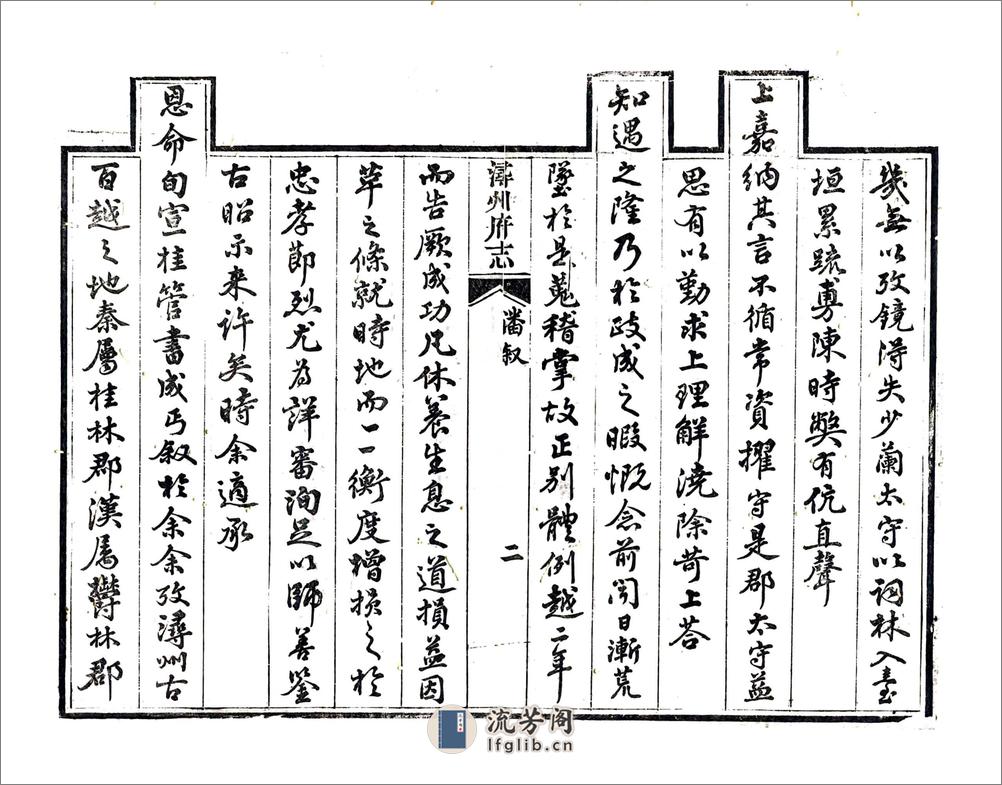 幾無以攷鏡得失少蘭太守以詞林入臺
垣累疏剴陳時弊有伉直聲
上嘉納其言不循常資擢守是郡太守益
思有以勤求上理解澆除苛上荅
知遇之隆乃於政成之暇慨念前聞日漸荒
墜於是蒐稽掌故正別體例越二年
潯州府志
潘叙
二
而告厥成功凡休養生息之道損益因
革之條就時地而一一衡度增損之於
忠孝節烈尤為詳審洵足以歸善鑒
古昭示来許矣時余適承
恩命旬宣桂管書成丐叙於余余攷潯州古
百越之地秦屬桂林郡漢屬鬱林郡
流芳阁
lfglib.cn